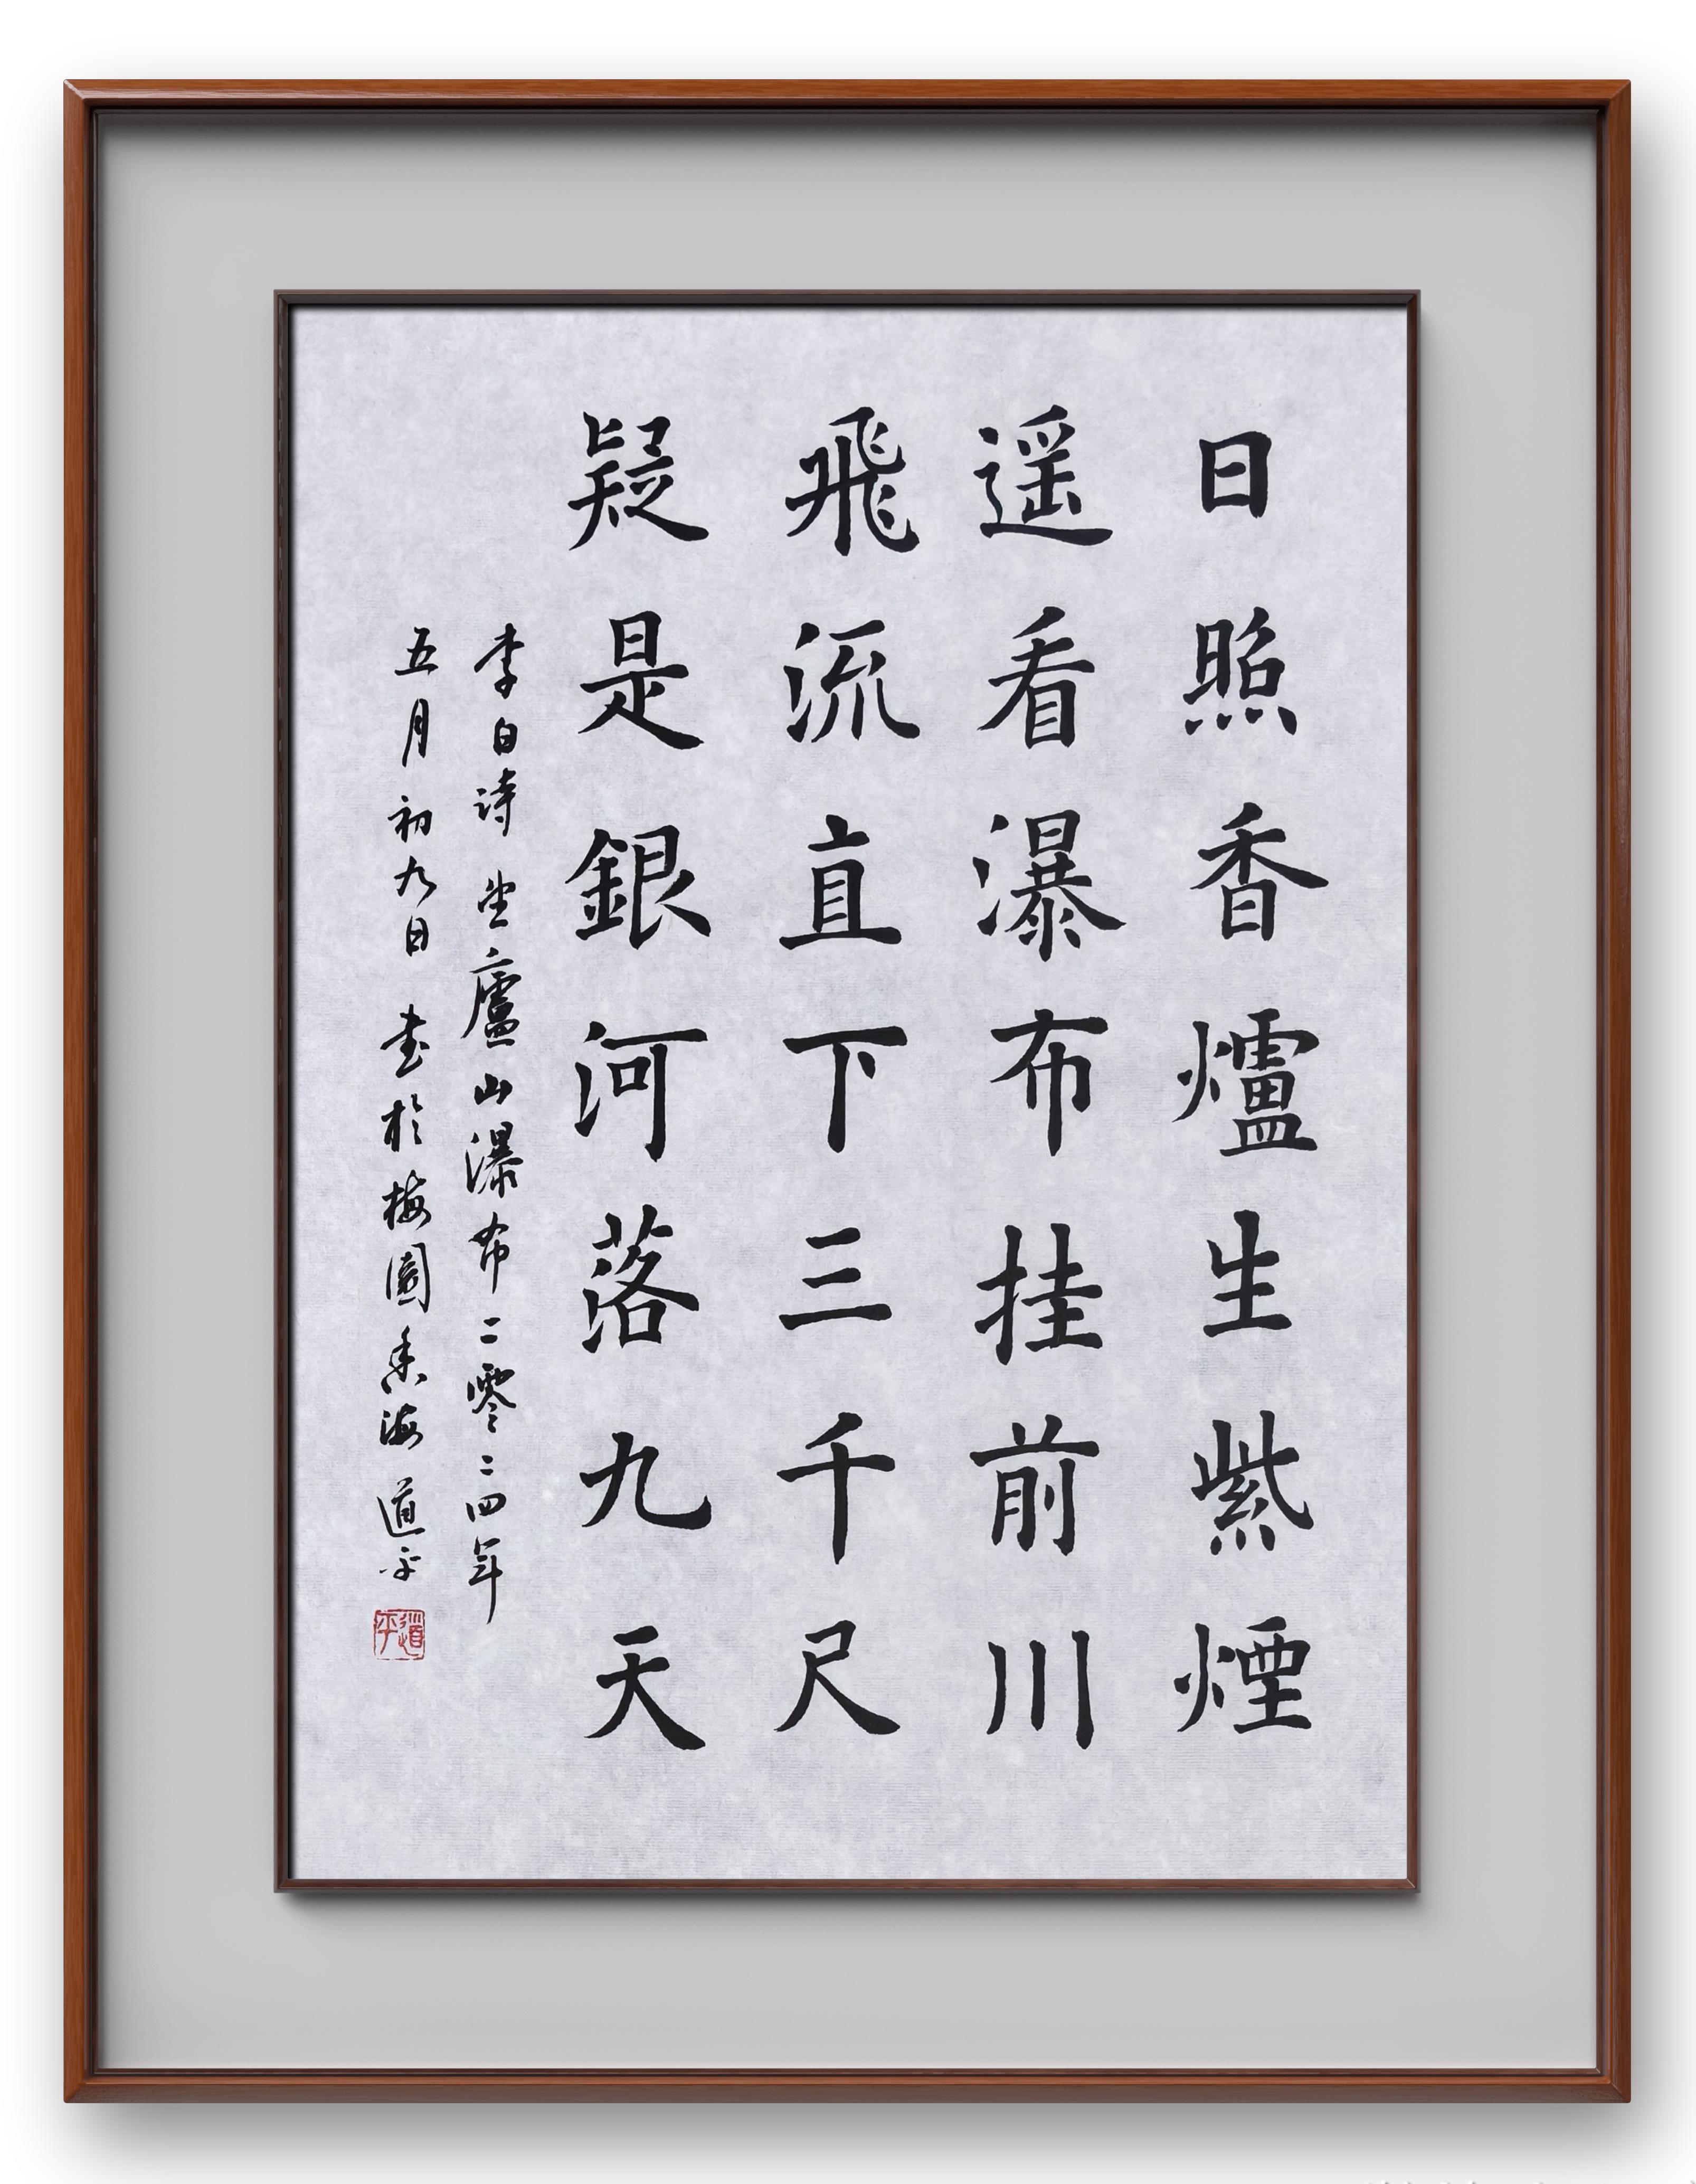 日照香爐生紫煙
遥看瀑布挂前川
飛流直下三千尺
疑是銀河落九天
李白诗 望廬山瀑布 二零二四年
五月初九日 书於梅園香海 道平
道平